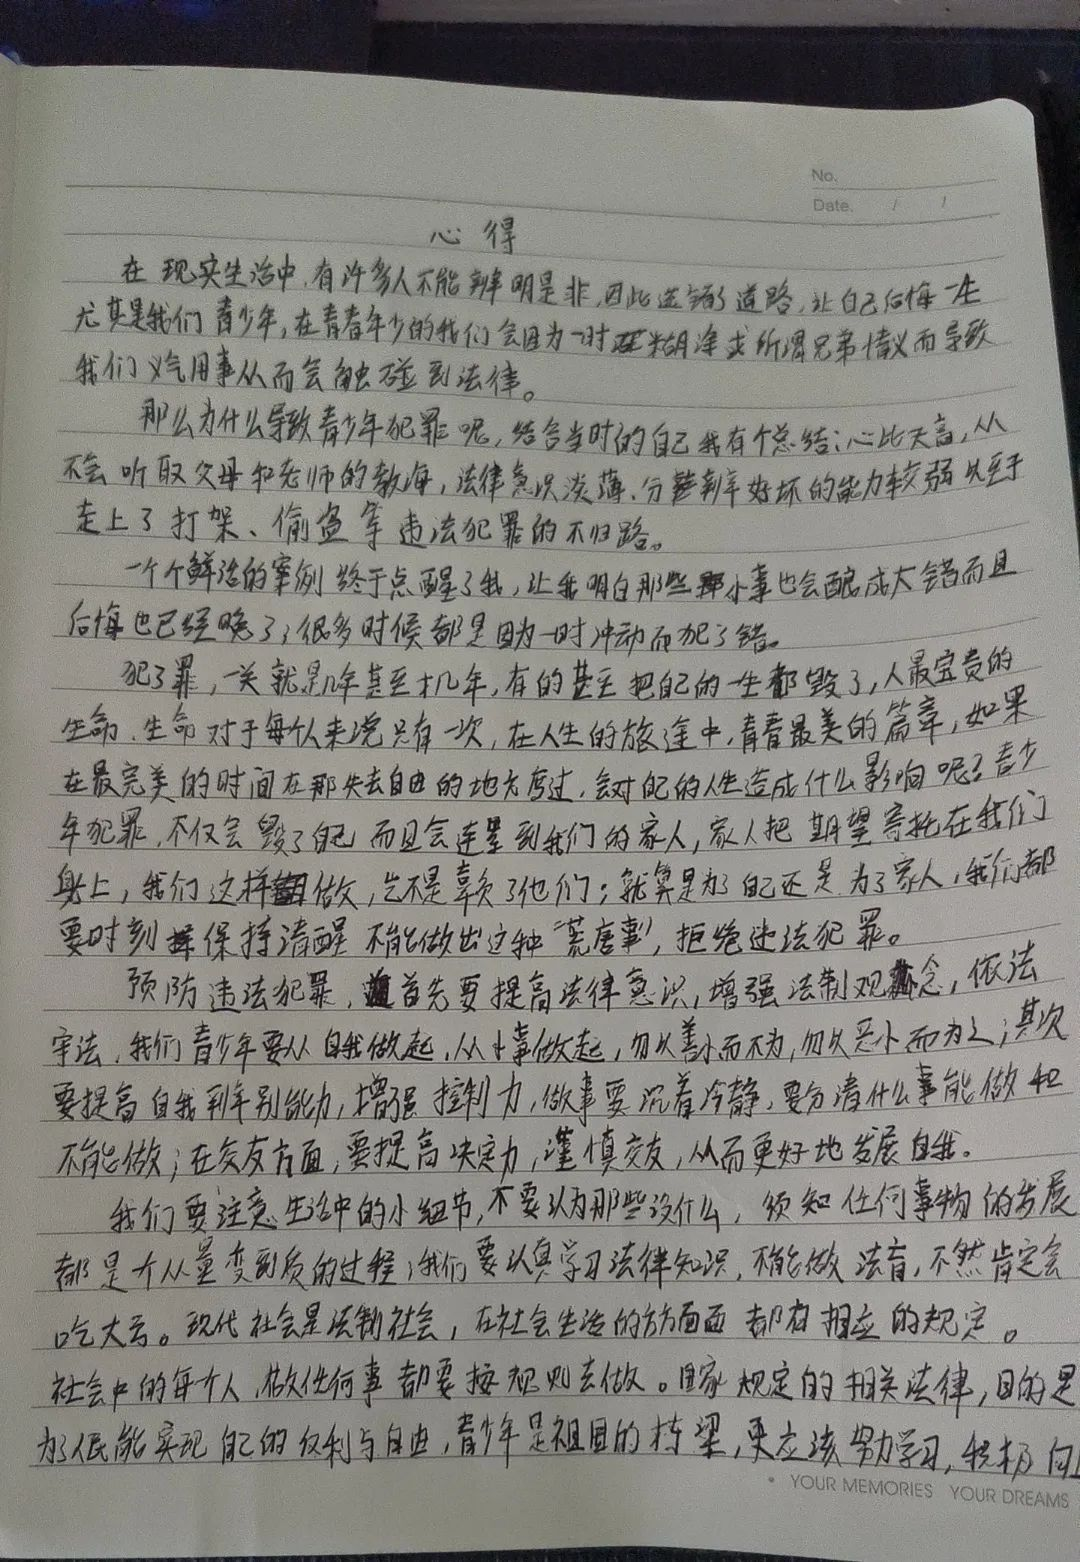 No.
Date. / /
心得
在现实生活中,有许多人不能辨明是非,因此选错了道路,让自己后悔一生
尤其是我们青少年,在青春年少的我们会因为一时糊涂或所谓兄弟情义而导致
我们义气用事从而会触碰到法律。
那么为什么导致青少年犯罪呢,结合当时的自己我有个总结:心比天高,从
不会听取父母和老师的教海,法律意识淡薄、分辨好坏的能力较弱以至于
走上了打架、偷盗等违法犯罪的不归路。
一个个鲜活的案例终于点醒了我,让我明白那些小事也会酿成大错而且
后悔也已经晚了,很多时候都是因为一时冲动而犯了错。
犯了罪,一关就是几年甚至十几年,有的甚至把自己的一生都毁了,人最宝贵的
生命、生命对于每个人来说只有一次,在人生的旅途中,青春最美的篇章,如果
在最完美的时间在那失去自由的地方度过,会对自己的人生造成什么影响呢?青少
年犯罪,不仅会毁了自己而且会连累到我们的家人,家人把期望寄托在我们
身上,我们这样做,岂不是辜负了他们;就算是为了自己还是为了家人,我们都
要时刻保持清醒不能做出这种“荒唐事”,拒绝违法犯罪。
预防违法犯罪,首先要提高法律意识,增强法制观念,依法
守法,我们青少年要从自我做起,从小事做起,勿以善小而不为,勿以恶小而为之;其次
要提高自我辨别能力,增强控制力,做事要沉着冷静,要分清什么事能做和
不能做;在交友方面,要提高决定力,谨慎交友,从而更好地发展自我。
我们要注意生活中的小细节,不要认为那些没什么,须知任何事物的发展
都是个从量变到质的过程,我们要认真学习法律知识,不能做法盲,不然肯定会
吃大亏。现代社会是法制社会,在社会生活的方方面面都有相应的规定。
社会中的每个人,做任何事都要按规则去做。国家规定的相关法律,目的是
为了人民能实现自己的权利与自由,青少年是祖国的栋梁,更应该努力学习,积极向上
YOUR MEMORIES YOUR DREAMS